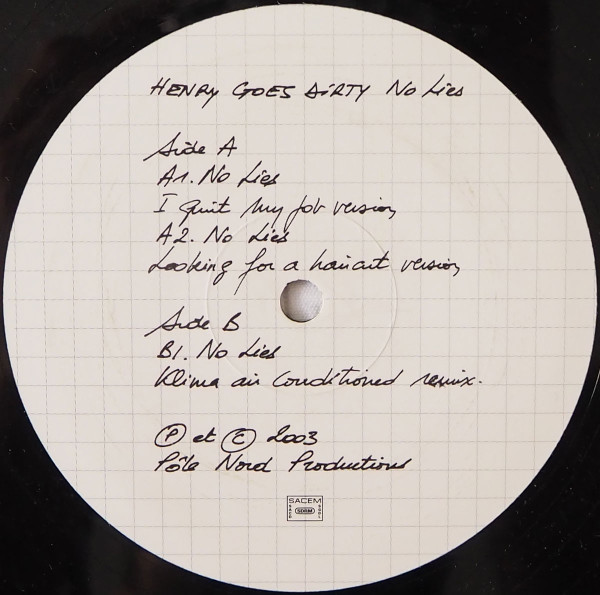 HENRY GOES DIRTY No Lies
Side A
A1. No Lies
I quit my job version
A2. No Lies
Looking for a haircut version
Side B
B1. No Lies
Klima air conditioned remix.
Ⓟ et © 2003
Pôle Nord Productions
SACEM
SDRM